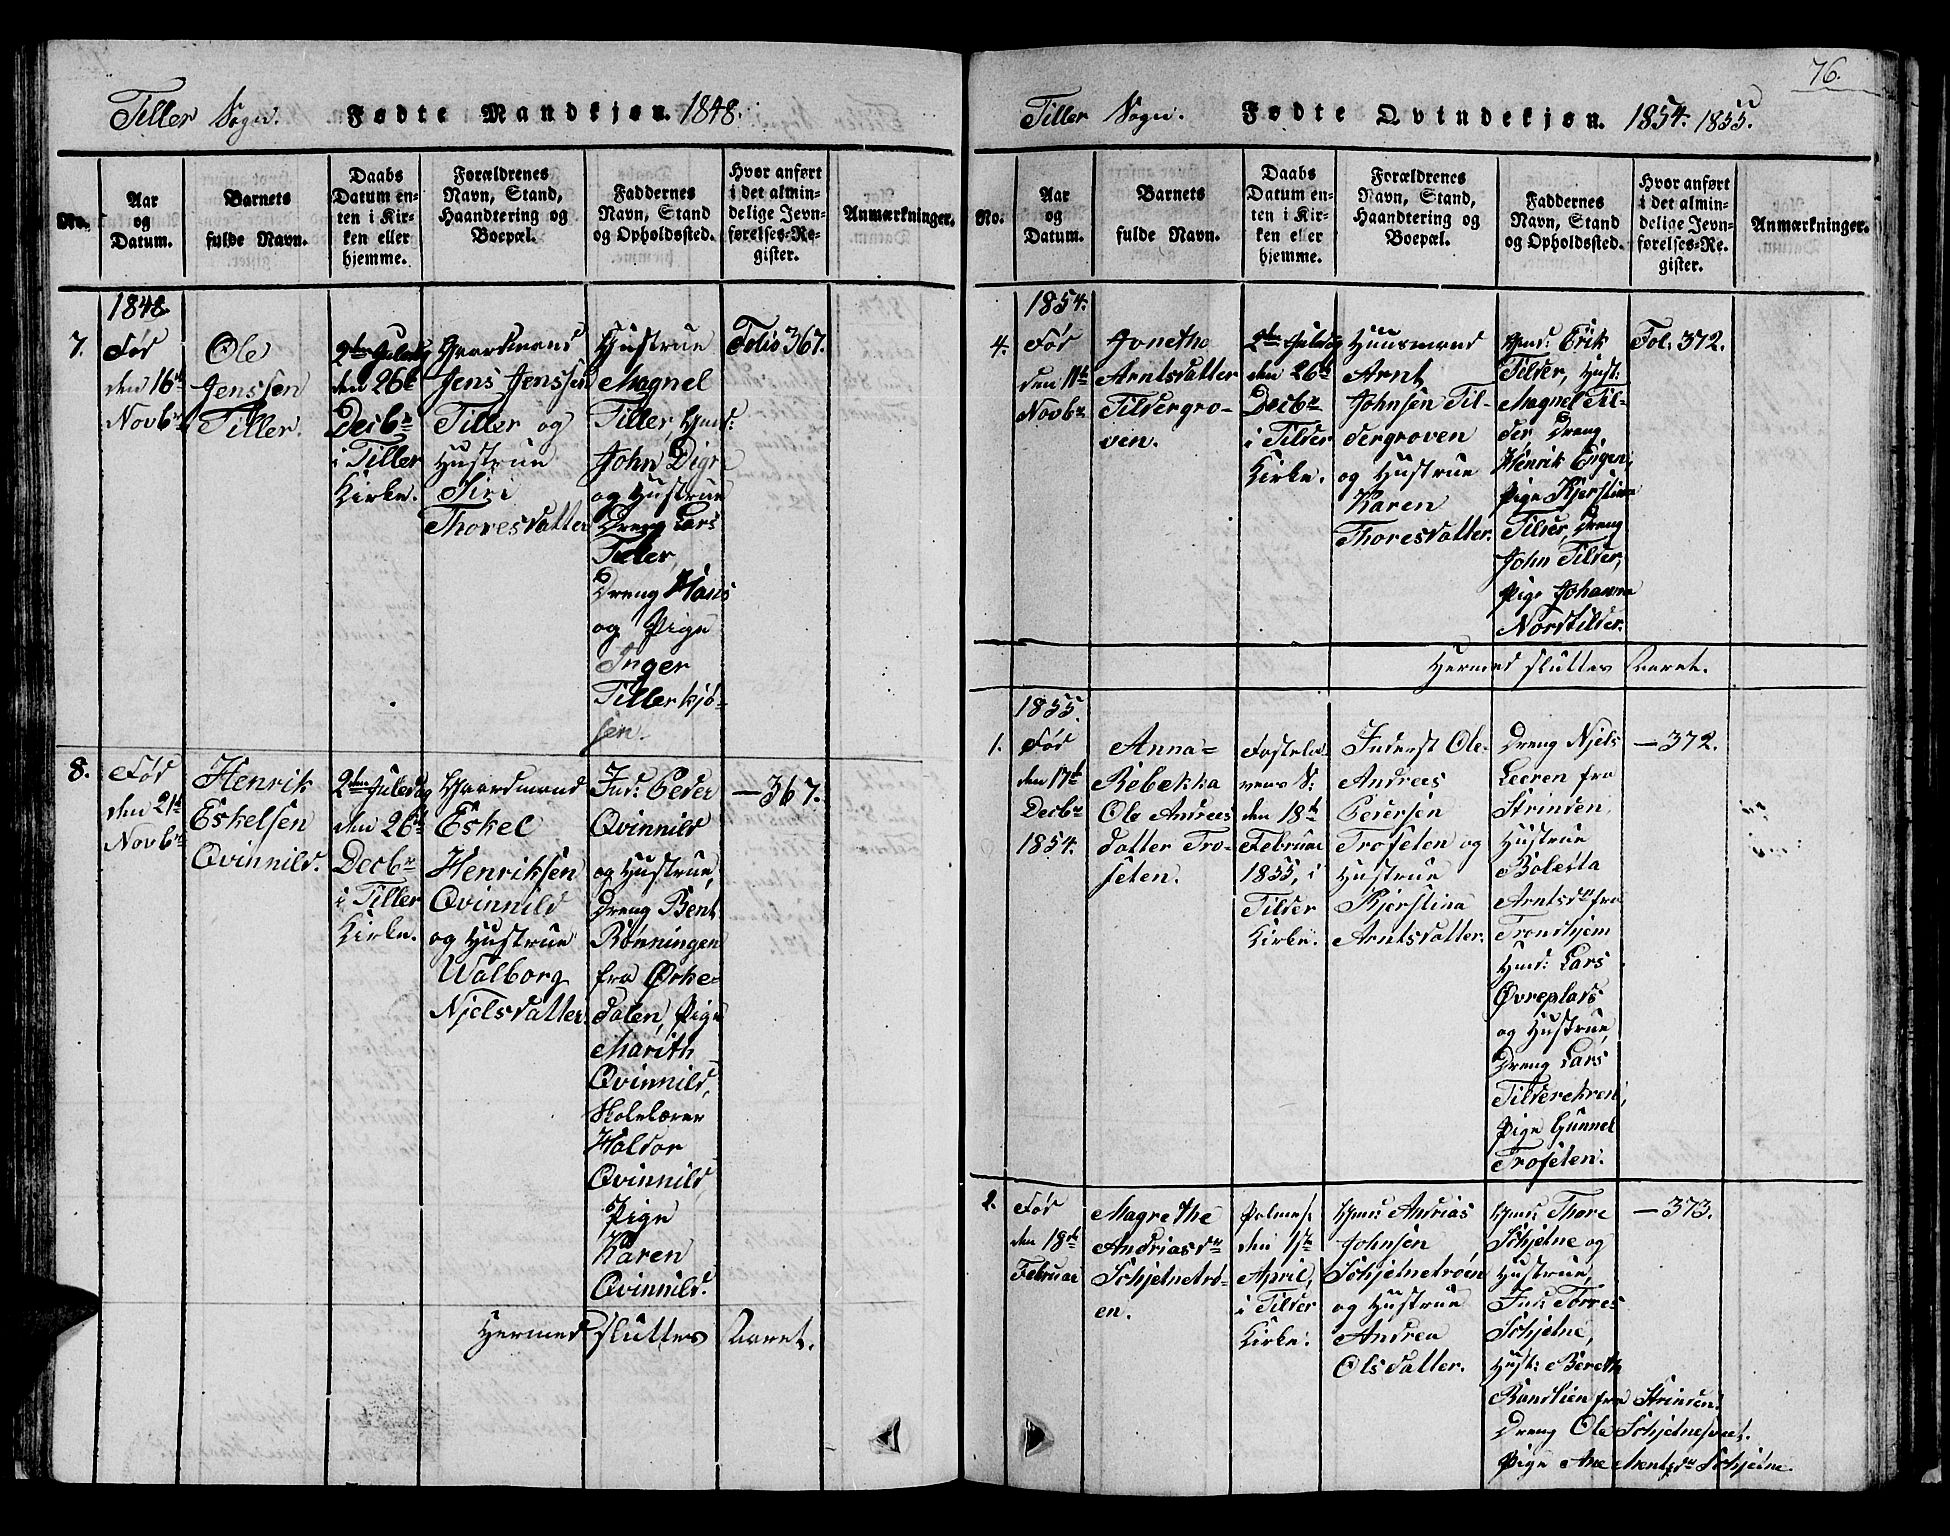 Tiller Sogn. Fødte Mandkjøn. 1848.
No.
Aar
og
Datum.
Barnets
fulde Navn.
Daabs
Datum en-
ten i Kir-
ken eller
hjemme.
Forældrenes
Navn, Stand,
Haandtering og
Boepæl.
Faddernes
Navn, Stand
og Opholdssted.
Hvor anført
i det almin-
delige Jevn-
førelses-Re-
gister.
Anmærkninger.
1848.
7.
Fød
den 16de
Novbr
Ole
Jenssen
Tiller.
2den Juledag
den 26de
Decbr
i Tiller
Kirke.
Gaardmand
Jens Jenssen
Tiller og
Hustrue
Siri
Thoresdatter
Hustrue
Magnel
Tiller, Gmd:
John Digre
og Hustrue
Dreng Lars
Tiller,
Dreng Hans
og Pige
Inger
Tillerkjø-
sen.
Folio 367.
8.
Fød
den 21de
Novbr
Henrik
Eskelsen
Qvinnild.
2den Juledag
den 26de
Decbr
i Tiller
Kirke.
Gaardmand
Eskel
Henriksen
Qvinnild
og Hustrue
Walborg
Njelsdatter.
Ind: Peder
Qvinnild
og Hustrue,
Dreng Bent
Rønningen
fra Ørke-
dalen, Pige
Marith
Qvinnild,
Skolelærer
Haldor
Qvinnild,
Pige
Karen
Qvinnild.
— 367.
Hermed sluttes Aaret.
76.
Tiller Sogn. Fødte Qvindekjøn. 1854. 1855.
No.
Aar
og
Datum.
Barnets
fulde Navn.
Daabs
Datum en-
ten i Kir-
ken eller
hjemme.
Forældrenes
Navn, Stand,
Haandtering og
Boepæl.
Faddernes
Navn, Stand
og Opholdssted.
Hvor anført
i det almin-
delige Jevn-
førelses-Re-
gister.
Anmærkninger.
1854.
4.
Fød
den 11te
Novbr.
Jonetha
Arntsdatter
Tildergro-
ven.
2den Juledag
den 26de
Decbr
i Tilder
Kirke.
Huusmand
Arnt
Johnsen Til-
dergroven
og Hustrue
Karen
Thoresdatter.
Gmd: Erik
Tilder, Hust:
Magnel Til-
der Dreng
Henrik Engen,
Pige Kjerstine
Tilder, Dreng
John Tilder,
Pige Johanna
Nordtilder.
Fol. 372.
Hermed sluttes Aaret.
1855.
1.
Fød
den 17de
Decbr
1854.
Anna=
Rebekka
Ole Andreas
datter Tro-
seten.
Fastela-
vens S:
den 18de
Februar
1855, i
Tilder
Kirke.
Inderst Ole-
Andreas
Pedersen
Troseten og
Hustrue
Kjerstina
Arntsdatter.
Dreng Njels
Leeren fra
Strinden,
Hustrue
Boletta
Arntsdr fra
Trondhjem
Hmd: Lars
Øvreplads
og Hustrue
Dreng Lars
Tilderekren,
Pige Gunnel
Troseten.
— 372.
2.
Fød
den 18de
Februar
Magrethe
Andriasdr
Schjetnetrø-
en.
Palmes.
den 1ste
April,
i Tilder
Kirke.
Hmd: Andrias
Johnsen
Schjetnetrøen
og Hustrue
Andrea
Olsdatter.
Gmd: Thore
Schjetne og
Hustrue,
Ind: Torres
Schjetne,
Hust: Bereth
Randlien fra Strinden.
Dreng Ole Schjetnesveet.
Pige Ane Arntsdr Schjetne.
— 373.